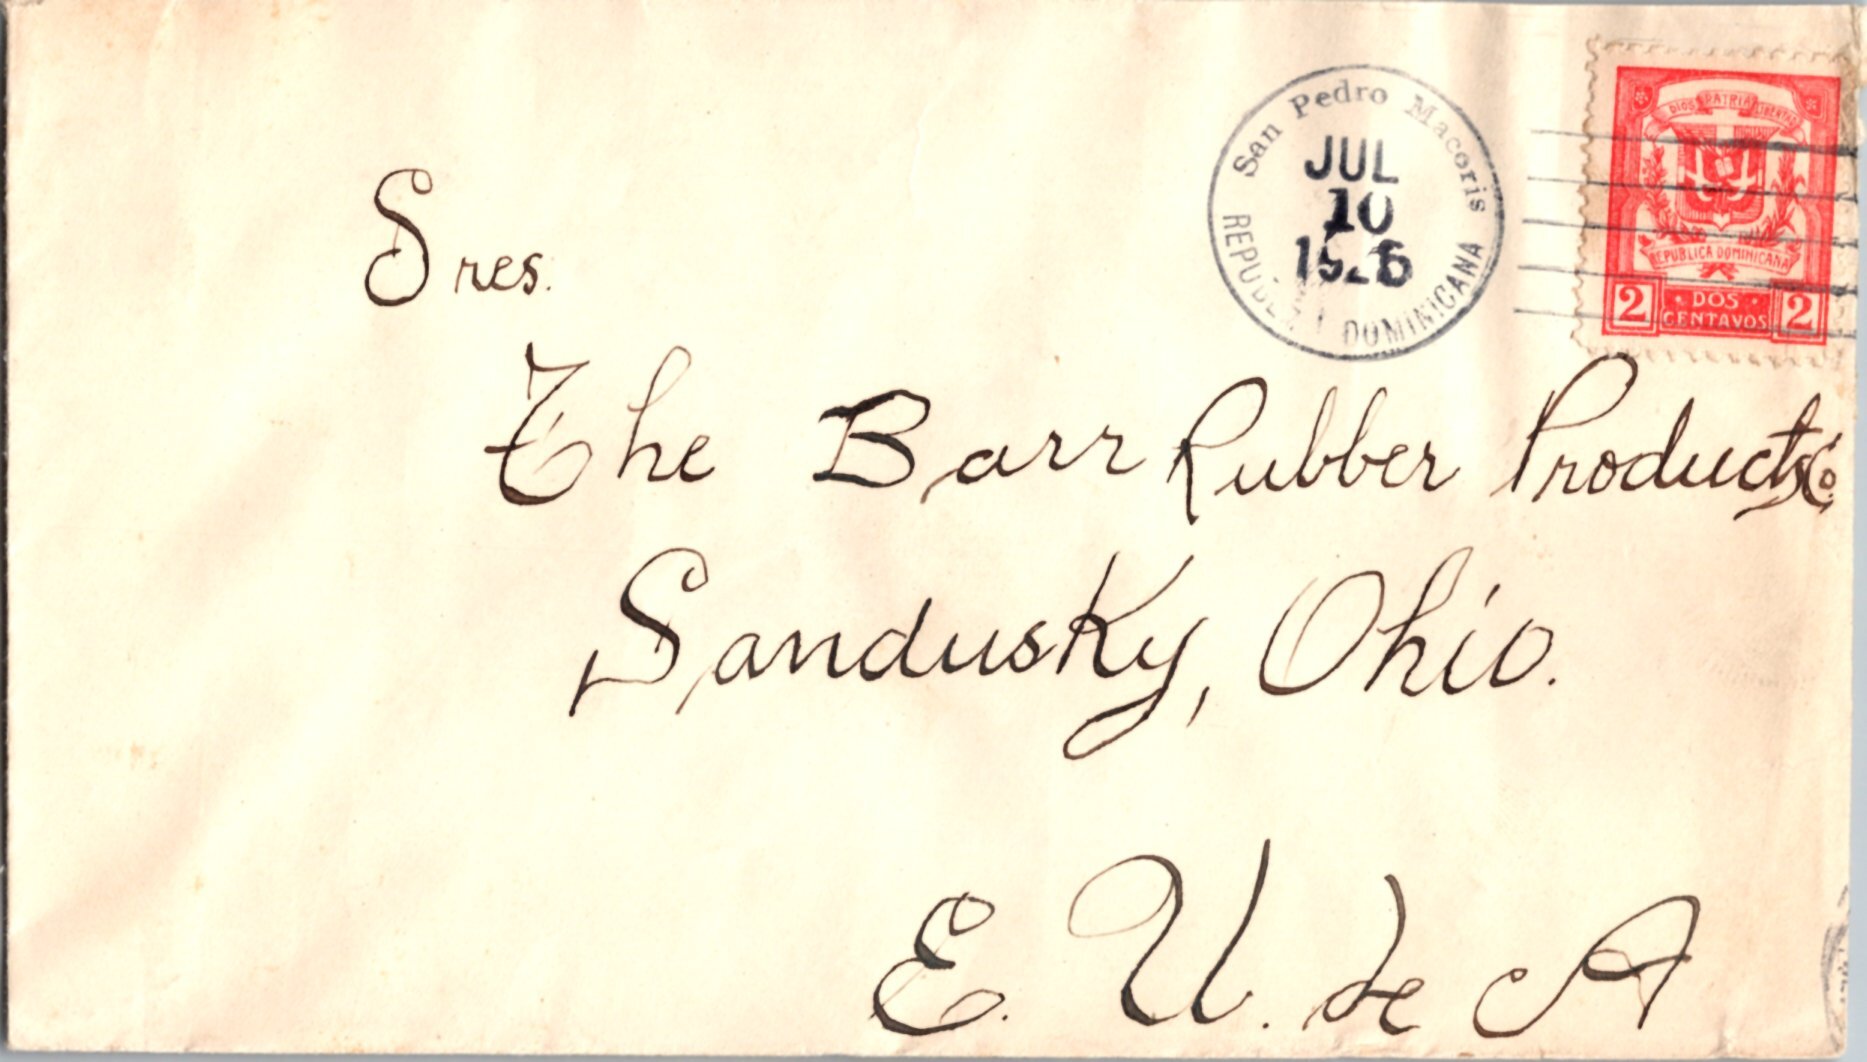 San Pedro Macoris
JUL
10
REPÚBLICA DOMINICANA
DIOS PATRIA LIBERTAD
REPUBLICA DOMINICANA
2 · DOS · 2
CENTAVOS
Sres.
The Barr Rubber Products Co.
Sandusky, Ohio.
E. U. de A